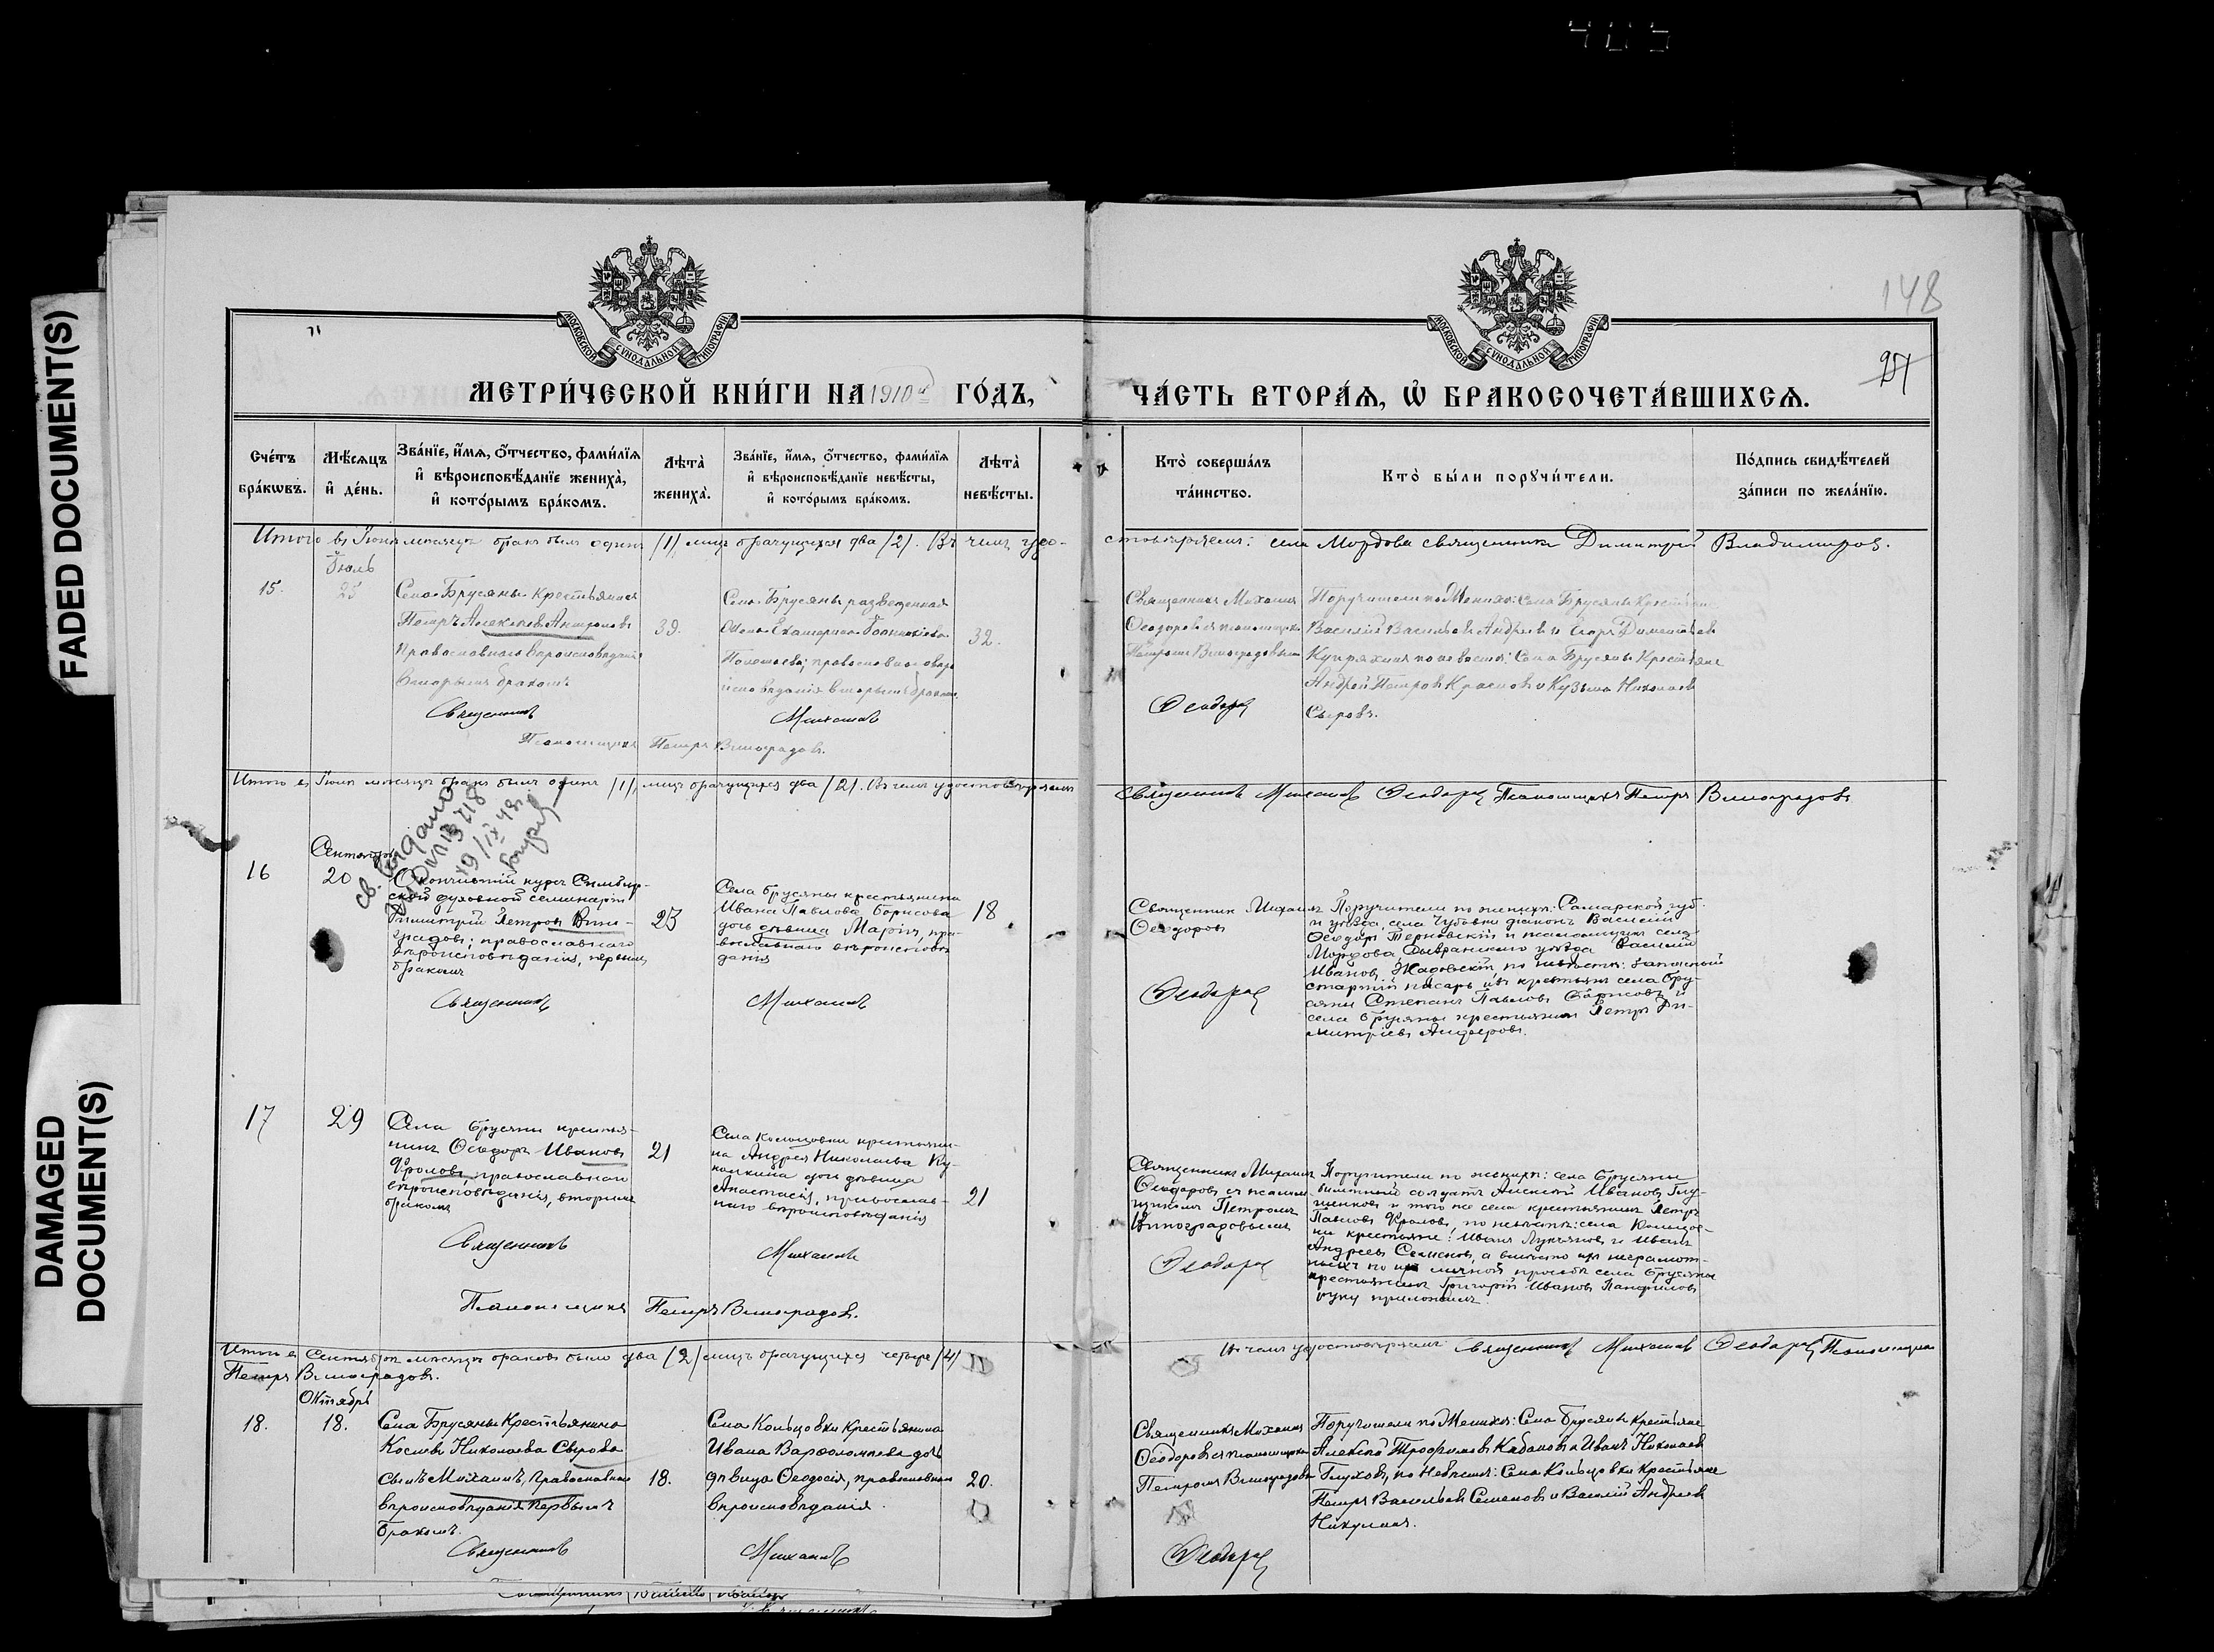 148
27
МОСКОВСКОЙ СУНОДАЛЬНОЙ ТИПОГРАФІИ
МОСКОВСКОЙ СУНОДАЛЬНОЙ ТИПОГРАФІИ
МЕТРИ́ЧЕСКОЙ КНИ́ГИ НА 1910 й ГО́ДЪ,
ЧА́СТЬ ВТОРА́Ѧ, Ѡ БРАКОСОЧЕТА́ВШИХСѦ.
Сче́тъ бра́кѡвъ.
Мѣ́сяцъ и҆ де́нь.
Зва́нїе, и҆́мѧ, ѻ҆́тчество, фами́лїѧ
и҆ вѣроисповѣ́данїе жениха̀,
и҆ кото́рымъ бра́комъ.
Лѣта̀ жениха̀.
Зва́нїе, и҆́мѧ, ѻ҆́тчество, фами́лїѧ
и҆ вѣроисповѣ́данїе невѣ́сты,
и҆ кото́рымъ бра́комъ.
Лѣта̀ невѣ́сты.
Кто̀ соверша́лъ та́инство.
Кто̀ бы́ли порꙋчи́тели.
По́дпись свидѣ́телей за́писи по жела́нїю.
Итого въ Іюнѣ мѣсяцѣ бракъ былъ одинъ /1/ лицъ брачущихся два /2/. Въ чемъ удо-
стовѣряемъ: села Мордова священникъ Димитрій Владимировъ.
Іюль
15.
25
Села Брусяны крестьянинъ
Петръ Алексѣевъ
православнаго вѣроисповѣданія
вторымъ бракомъ
39.
Села Брусяны разведенная
жена Екатерина
православнаго вѣро
исповѣданія вторымъ бракомъ
32.
Священникъ Михаилъ
Ѳеодоровъ съ псаломщикомъ
Петромъ Виноградовымъ
Поручители по Женихѣ: Села Брусяны крестьяне
Василій Васильевъ Андреевъ и Егоръ Дементьевъ
Купряхинъ по невѣстѣ: Села Брусяны Крестьяне
Андрей Петровъ Красновъ и Кузьма Николаевъ
Сыровъ.
Священникъ Михаилъ Ѳеодоровъ
Псаломщикъ Петръ Виноградовъ.
Итого въ Іюлѣ мѣсяцѣ бракъ былъ одинъ /1/, лицъ брачущихся два /2/. Въ чемъ удостовѣряемъ
Священникъ Михаилъ Ѳеодоровъ Псаломщикъ Петръ Виноградовъ
св. выдано
19/IX 49г.
Сентябрь
16
20
Окончившій курсъ Симбир-
ской духовной семинаріи
Димитрій Петровъ Вино-
градовъ; православнаго
вѣроисповѣданія, первымъ
бракомъ
23
Села Брусяны крестьянина
Ивана Павлова Борисова
дочь дѣвица Марія, пра-
вославнаго вѣроисповѣ
данія
18
Священникъ Михаилъ
Ѳеодоровъ
Поручители по женихѣ: Самарской губ.
и уѣзда, села Чубовки діаконъ Василій
Ѳеодоровъ Терновскій и псаломщикъ села
Мордова Сызранскаго уѣзда Василій
Иванов. Жадовскій, по невѣстѣ: запасный
старшій писарь изъ крестьянъ села Бру-
сяны Степанъ Павловъ Борисовъ и
села Брусяны крестьянинъ Петръ Ди-
митріевъ
Священникъ Михаилъ Ѳеодоровъ
17
29
Села Брусяны крестья-
нинъ Ѳеодоръ Ивановъ
Фроловъ, православнаго
вѣроисповѣданія, вторымъ
бракомъ
21
Села Кольцовки крестьяни-
на Андрея Николаева Ку-
калкина дочь дѣвица
Анастасія, православ-
наго вѣроисповѣданія
21
Священникъ Михаилъ
Ѳеодоровъ съ псалом-
щикомъ Петромъ
Виноградовымъ
Поручители по женихѣ: села Брусяны
билетный солдатъ Алексѣй Ивановъ Глу-
и того же села крестьянинъ Петръ
Павловъ Фроловъ, по невѣстѣ: села Кольцов-
ки крестьяне: Иванъ Лукьяновъ и Иванъ
Андреевъ Семеновъ, а вмѣсто ихъ неграмот-
ныхъ по ихъ личной просьбѣ села Брусяны
крестьянинъ Григорій Ивановъ Панфиловъ
руку приложилъ
Священникъ Михаилъ Ѳеодоровъ
Псаломщикъ Петръ Виноградовъ.
Итого въ Сентябрѣ мѣсяцѣ браковъ было два /2/ лицъ брачущихся четыре /4/
Въ чемъ удостовѣряемъ: Священникъ Михаилъ Ѳеодоровъ Псаломщикъ
Петръ Виноградовъ.
Октябрь
18.
18.
Села Брусяны Крестьянина
Космы Николаева Сырова
сынъ Михаилъ, Православнаго
вѣроисповѣданія первымъ
бракомъ.
18.
Села Кольцовки Крестьянина
Ивана Варѳоломеева дочь
дѣвица Ѳеодосія, православнаго
вѣроисповѣданія.
20.
Священникъ Михаилъ
Ѳеодоровъ съ псаломщикомъ
Петромъ Виноградовымъ
Поручители по Женихѣ: Села Брусяны крестьяне
Алексѣй Трофимовъ Кабановъ и Иванъ Николаевъ
Глуховъ, по Невѣстѣ: Села Кольцовки Крестьяне
Петръ Васильевъ Семеновъ и Василій Андреевъ
Никулинъ.
Священникъ Михаилъ Ѳеодоровъ
FADED DOCUMENT(S)
DAMAGED DOCUMENT(S)